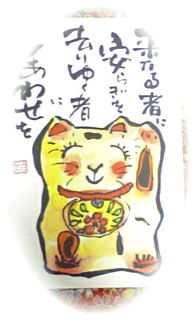 来たる者に
安らぎを
去りゆく者
に
しあわせを